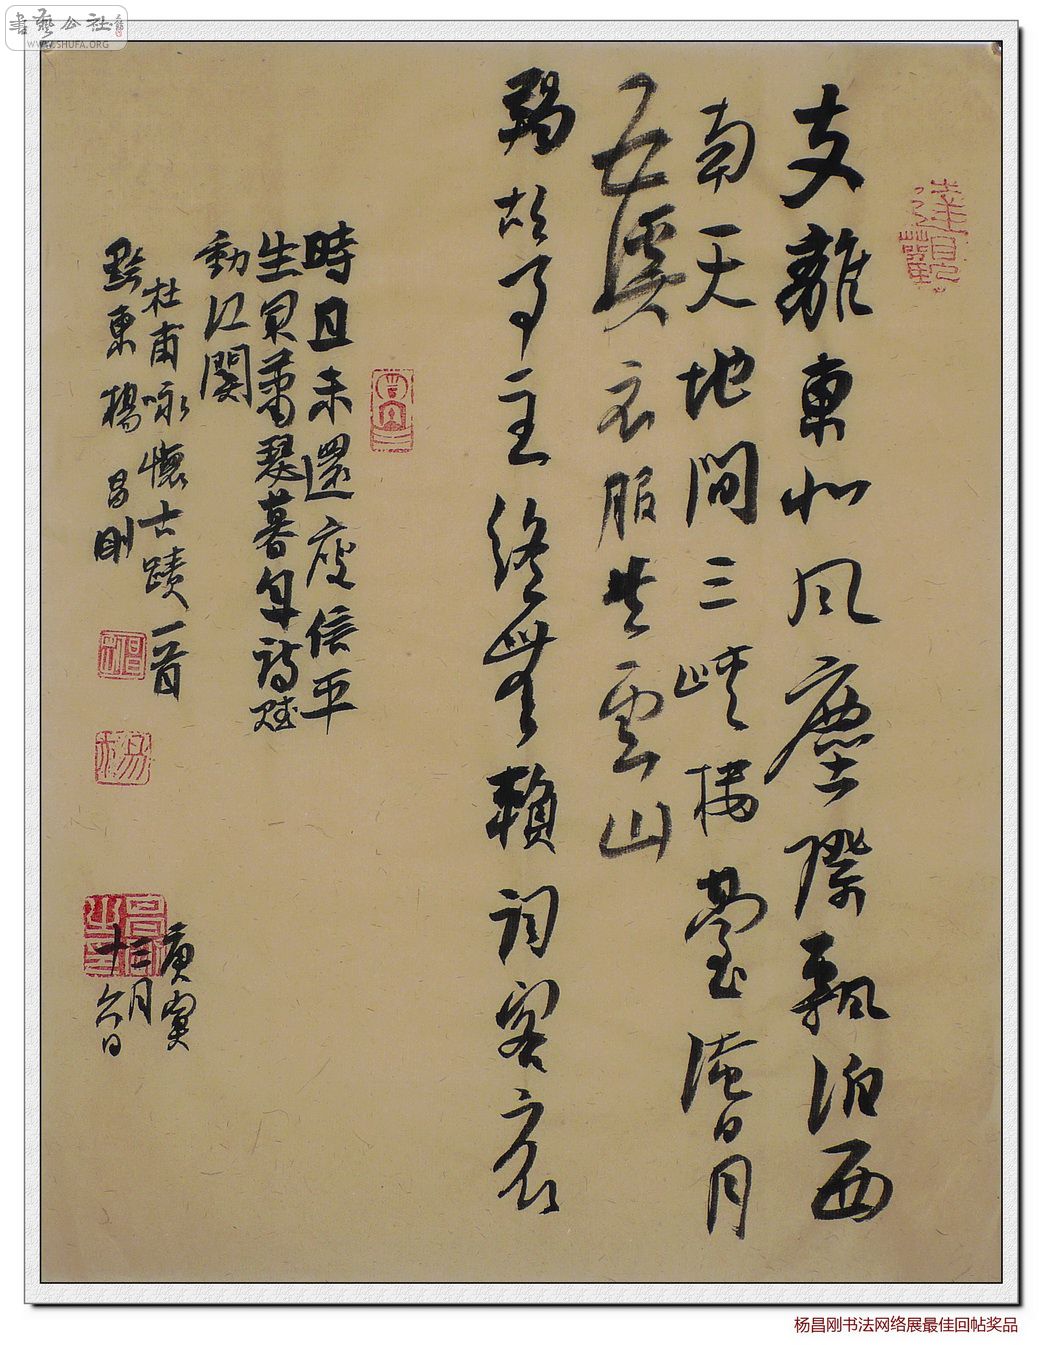 書藝公社
WWW.SHUFA.ORG
達觀
支離東北風塵際飄泊西
南天地間三峽樓臺淹日月
五溪衣服共雲山
羯胡事主終無賴詞客哀
時且未還庾信平
生最蕭瑟暮年詩賦
動江關
杜甫咏懷古蹟一首
黔東楊昌剛
庚寅
三月
十六日
杨昌刚书法网络展最佳回帖奖品